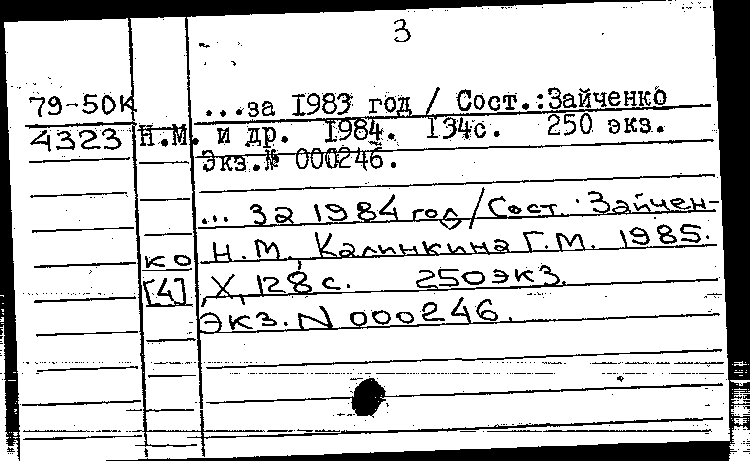 3
79-50К ...за 1983 год / Сост.:Зайченко
4323 Н.М. и др. 1984. 134с. 250 экз.
Экз.№ 000246.
... за 1984 год/Сост. Зайчен-
ко Н.М., Калинкина Г.М. 1985.
[4], X, 128 с. 250экз.
экз. N 000246.